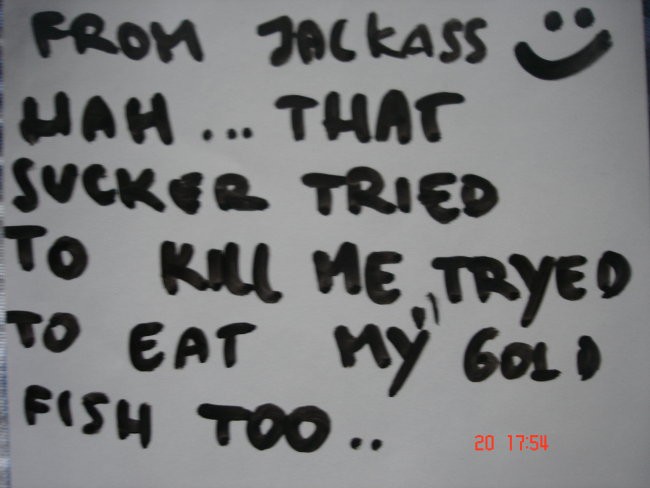 FROM JACKASS
HAH... THAT
SUCKER TRIED
TO KILL ME, TRYED
TO EAT MY GOLD
FISH TOO..
20 17:54